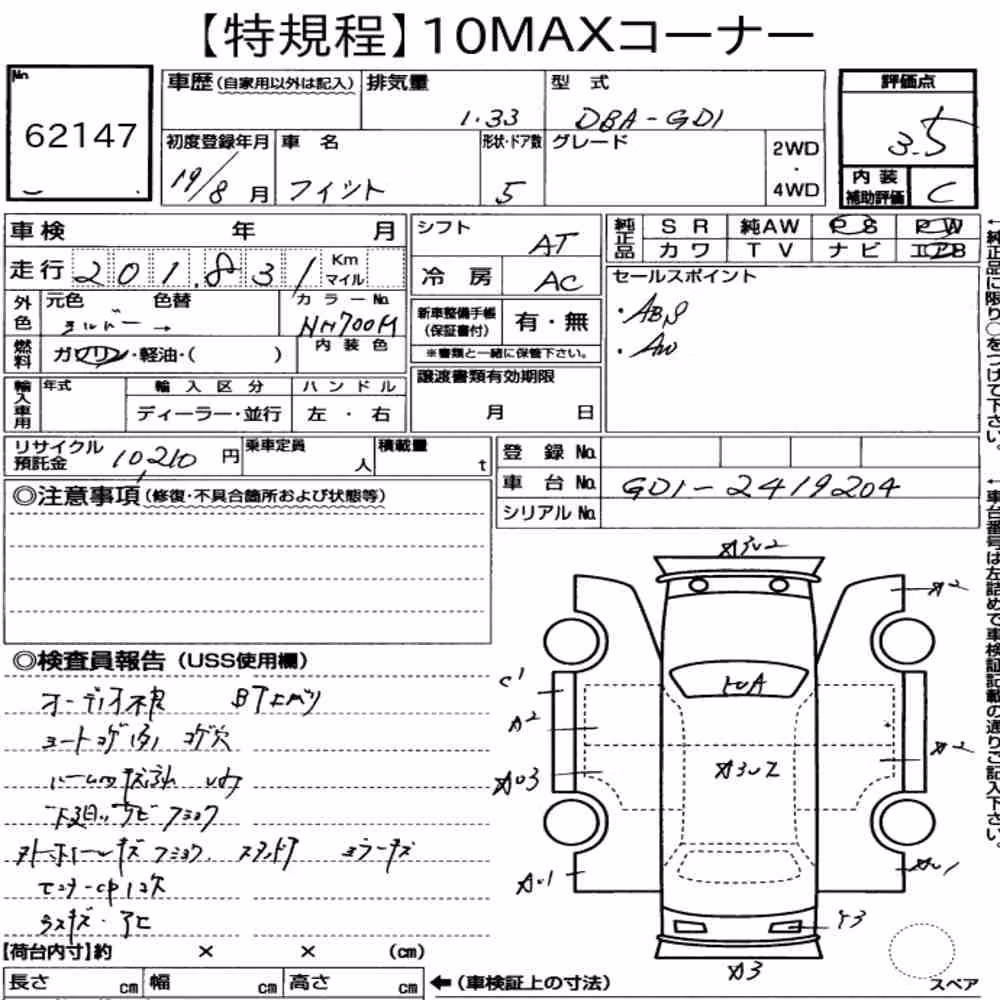 【特規程】10MAXコーナー
No. 62147
車歴(自家用以外は記入) 排気量 1.33 型式 DBA-GD1
評価点 3.5
初度登録年月 19/8月 車名 フィット 形状・ドア数 5 グレード 2WD・4WD
内装補助評価 C
車検 年 月
走行 201,831 Km マイル
シフト AT
冷房 AC
純正品 SR 純AW PS PW
カワ TV ナビ エアB
外色 元色 シルバー → 色替 カラーNo. NH700M
新車整備手帳(保証書付) 有・無
※書類と一緒に保管下さい。
セールスポイント
・ABS
・AW
燃料 ガソリン・軽油・( ) 内装色
譲渡書類有効期限 月 日
輸入車用 年式 輸入区分 ディーラー・並行 ハンドル 左・右
リサイクル預託金 10,210円 乗車定員 人 積載量 t
登録No.
車台No. GD1-2419204
シリアルNo.
◎注意事項(修復・不具合箇所および状態等)
◎検査員報告(USS使用欄)
オーディオ不良
シートコゲ コゲ穴
モニターCP1欠
【荷台内寸】約 × × (cm)
長さ cm 幅 cm 高さ cm ←(車検証上の寸法)
A2
C1
A2
A2
AU1
AU1
Y3
A3
スペア
←純正品に限り○をつけて下さい。
←車台番号は左詰めで車検証記載の通りご記入下さい。